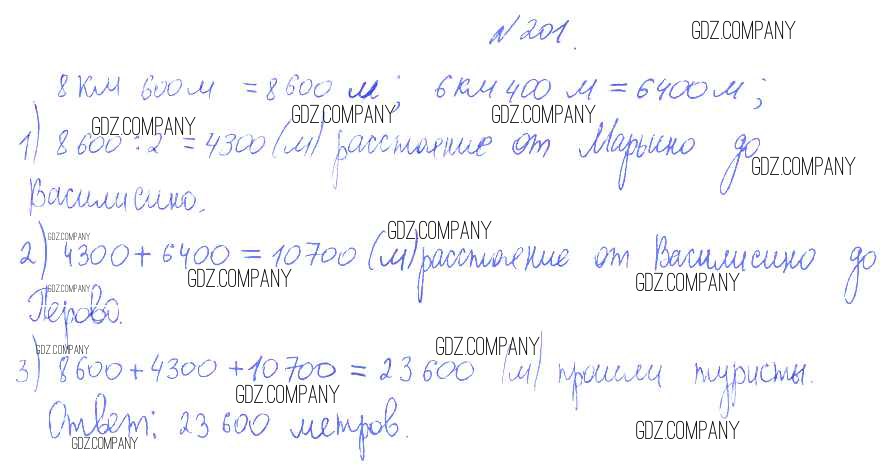 N 201. GDZ.COMPANY
8 км 600 м = 8600 м; 6 км 400 м = 6400 м;
GDZ.COMPANY GDZ.COMPANY GDZ.COMPANY
1) 8600 : 2 = 4300 (м) расстояние от Марьино до
GDZ.COMPANY
Василисино.
GDZ.COMPANY GDZ.COMPANY
2) 4300 + 6400 = 10700 (м) расстояние от Василисино до
GDZ.COMPANY GDZ.COMPANY
GDZ.COMPANY
Перово.
GDZ.COMPANY GDZ.COMPANY
3) 8600 + 4300 + 10700 = 23600 (м) прошли туристы.
GDZ.COMPANY
Ответ: 23600 метров.
GDZ.COMPANY GDZ.COMPANY